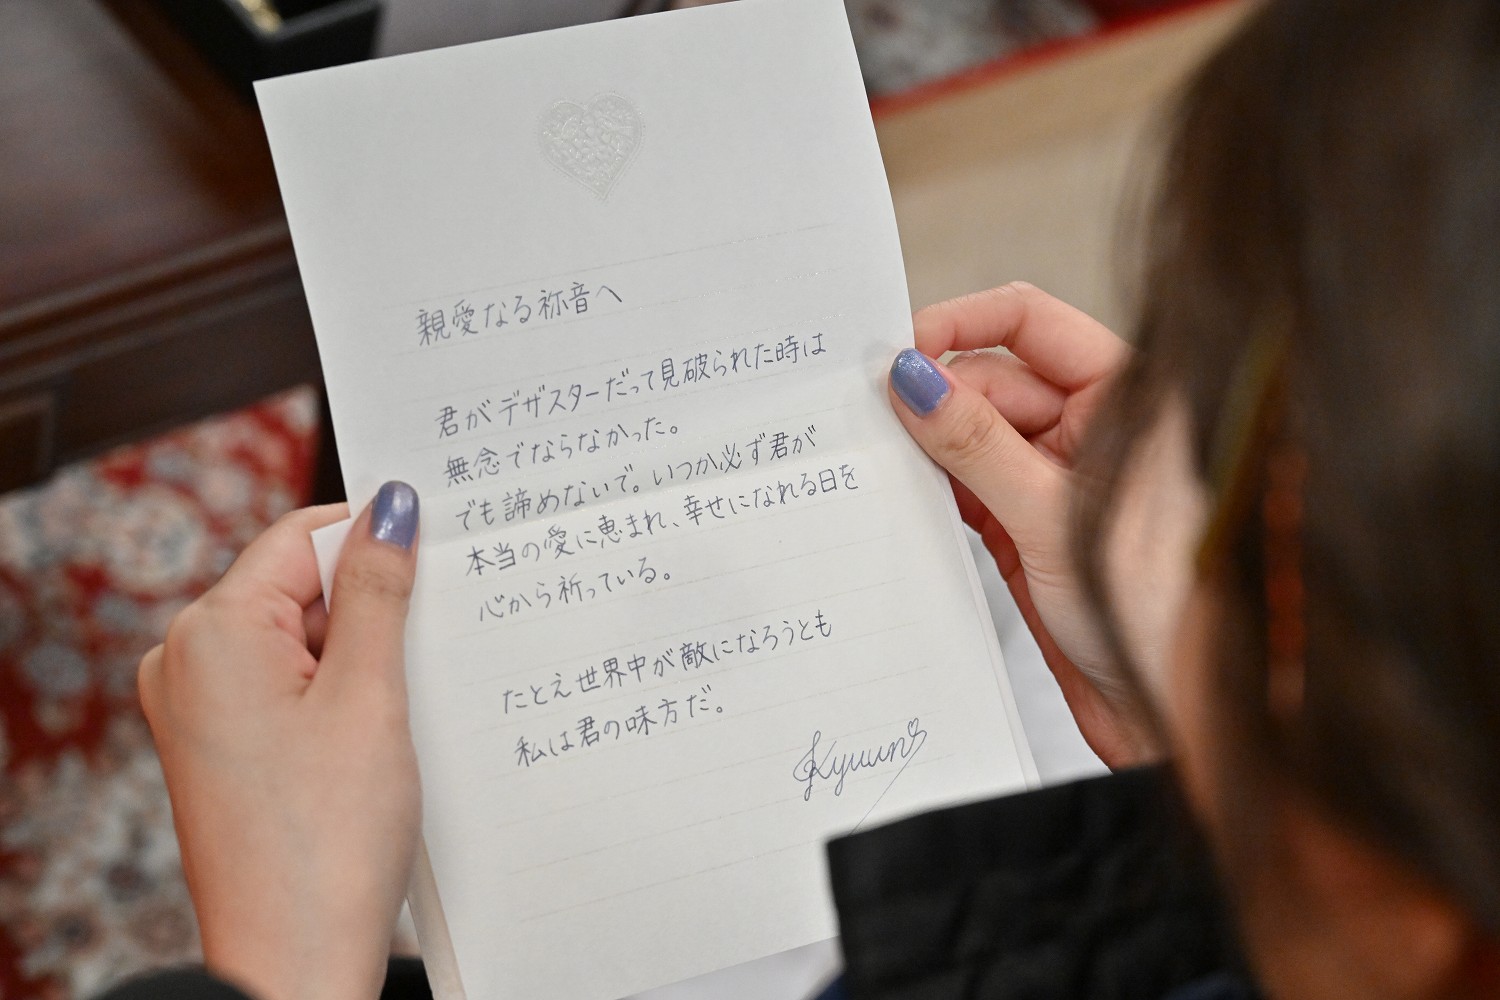 親愛なる祢音へ
君がデザスターだって見破られた時は
無念でならなかった。
でも諦めないで。いつか必ず君が
本当の愛に恵まれ、幸せになれる日を
心から祈っている。
たとえ世界中が敵になろうとも
私は君の味方だ。
Kyuun